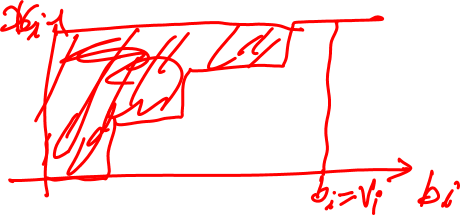 x_i
b_i=v_i b_i